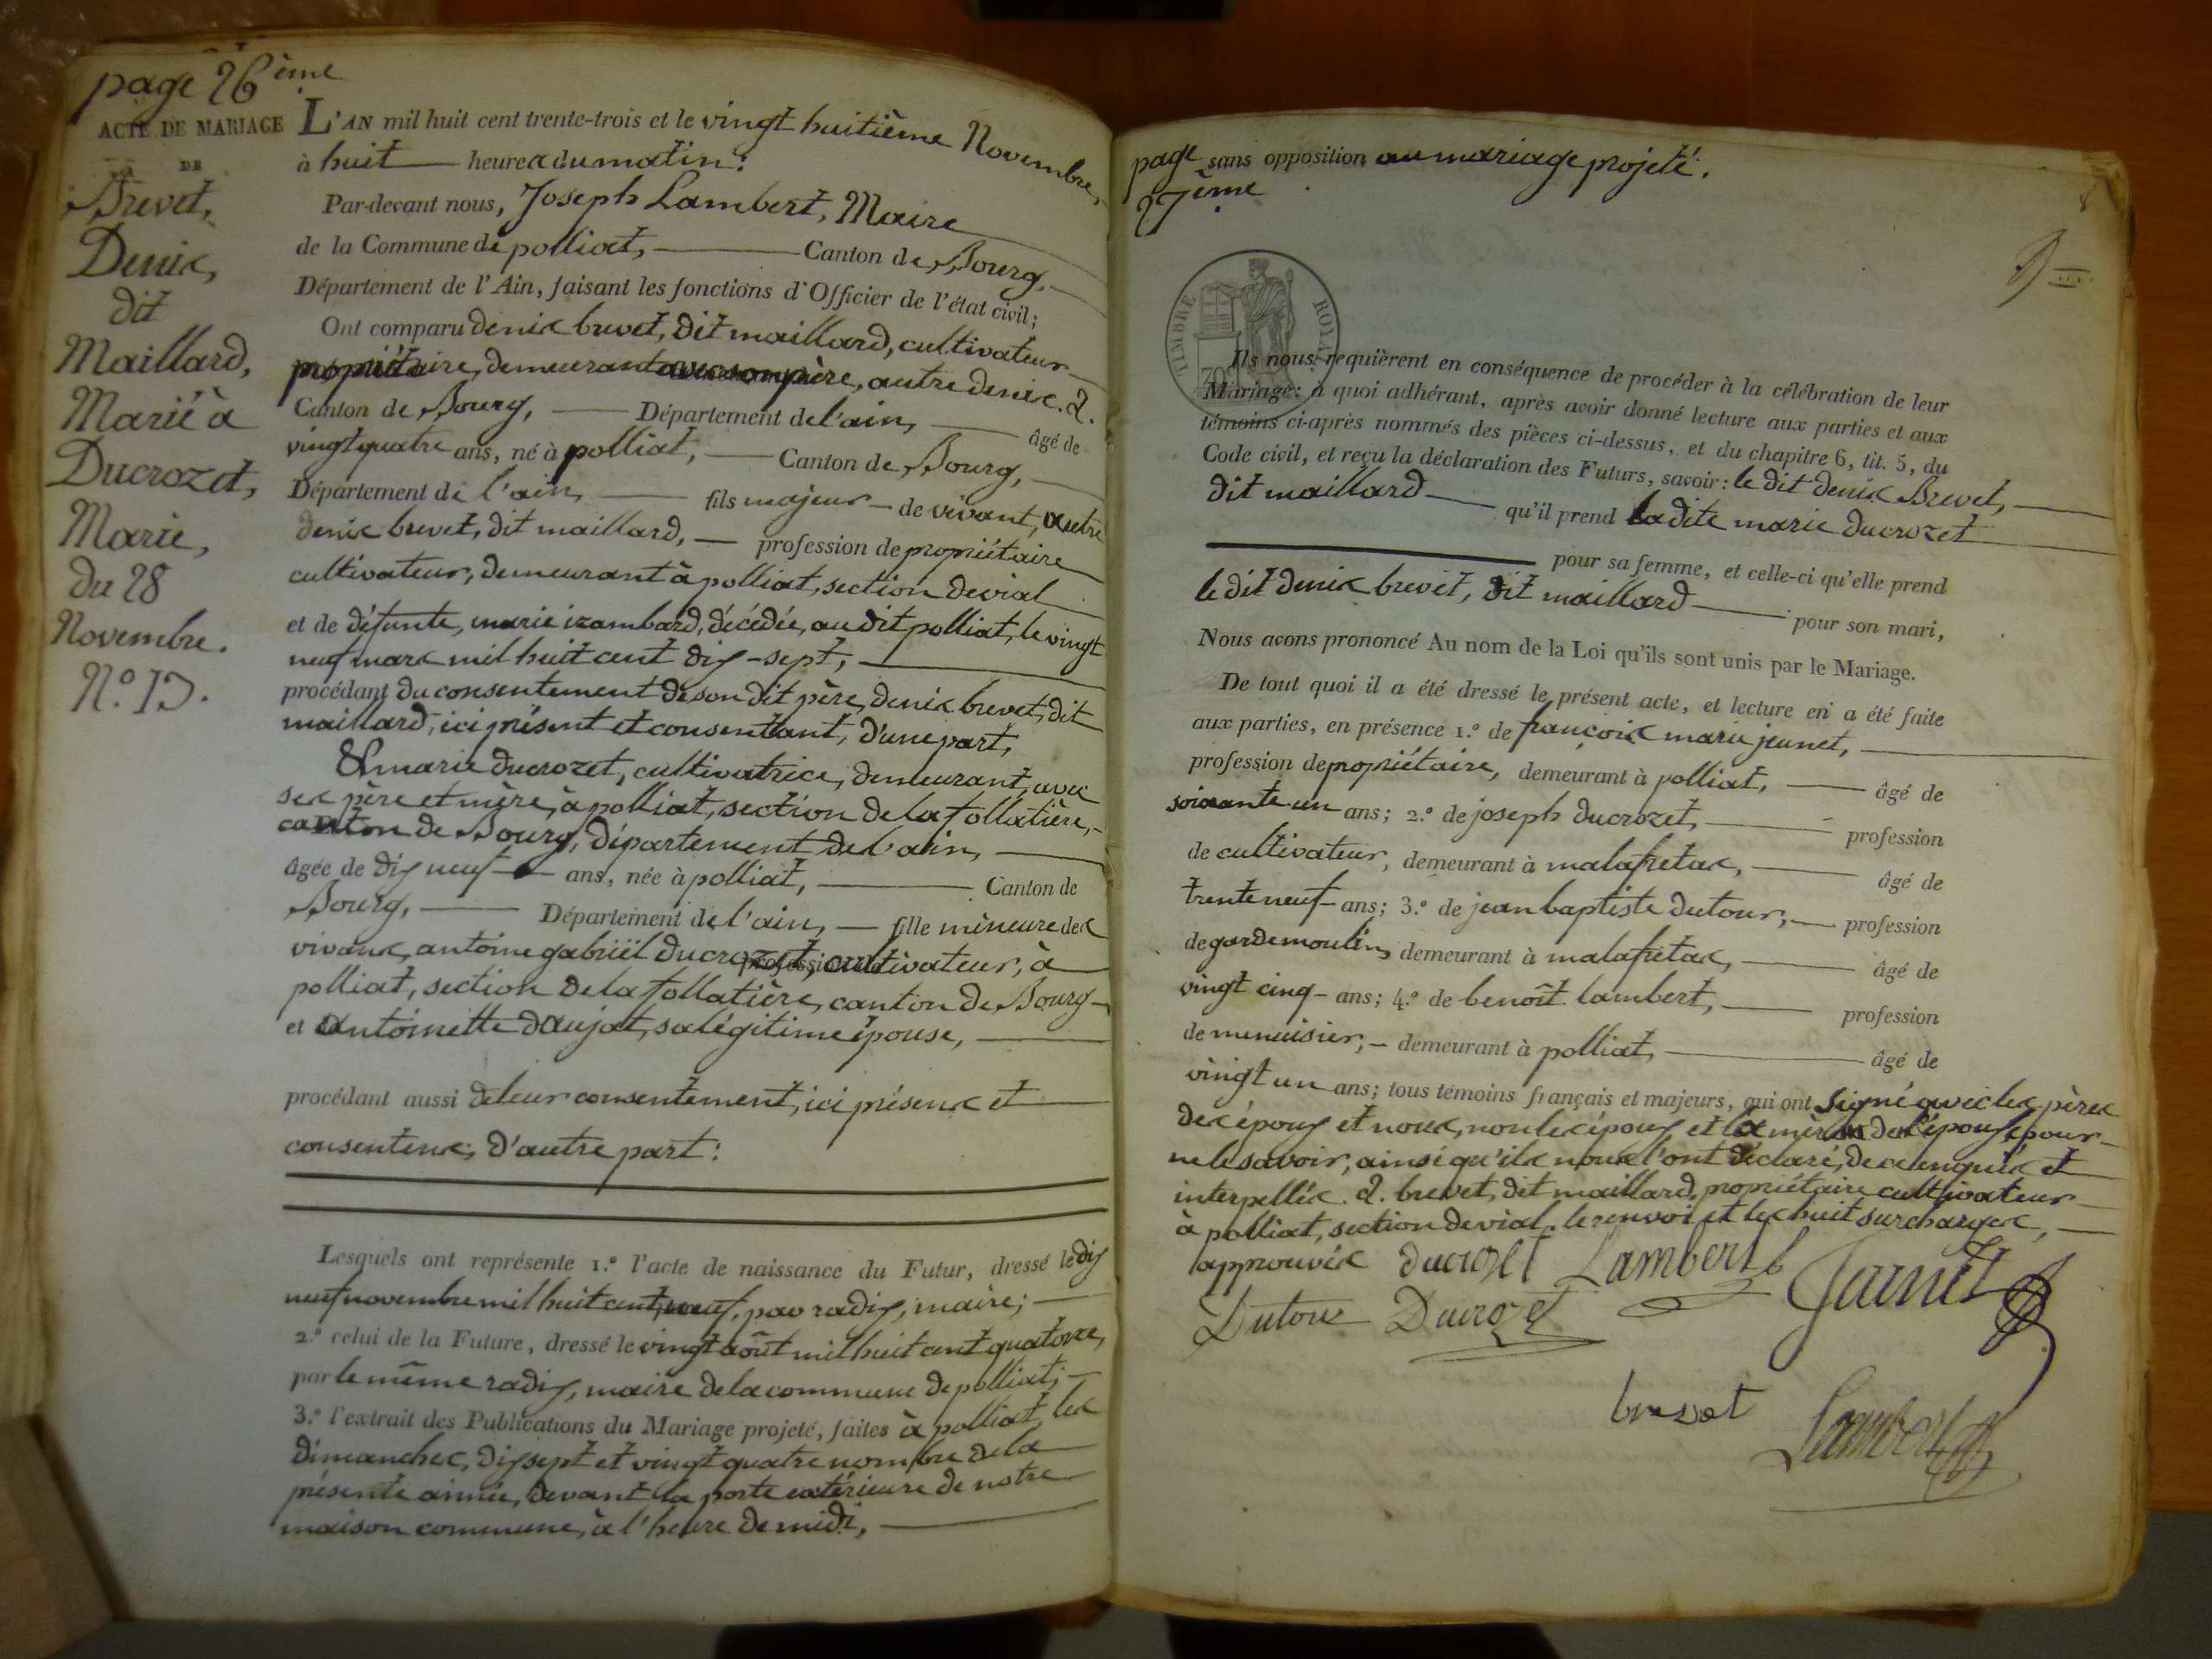 page 26ème
ACTE DE MARIAGE
DE
Brevet,
Denis,
dit
Maillard,
Marié à
Ducrozet,
Marie,
du 28
Novembre.
N.° 13.
L'AN mil huit cent trente-trois et le vingt huitième Novembre,
à huit heures du matin;
Par-devant nous, Joseph Lambert, Maire
de la Commune de polliat, Canton de Bourg,
Département de l'Ain, faisant les fonctions d'Officier de l'état civil;
Ont comparu denis brevet, dit maillard, cultivateur
propriétaire, demeurant avec son père, autre denis. 2.
Canton de Bourg, Département de l'ain, âgé de
vingt quatre ans, né à polliat, Canton de Bourg,
Département de l'ain, fils majeur de vivant, autre
denis brevet, dit maillard, profession de propriétaire
cultivateur, demeurant à polliat, section de vial
et de défunte, marie izambard, décédée, au dit polliat, le vingt
neuf mars mil huit cent dix-sept,
procédant du consentement de son dit père, denis brevet, dit
maillard, ici présent et consentant, d'une part,
Et marie ducrozet, cultivatrice, demeurant, avec
ses père et mère, à polliat, section de la follatière,
canton de Bourg, département de l'ain,
âgée de dix neuf ans, née à polliat, Canton de
Bourg, Département de l'ain, fille mineure des
vivans, antoine gabriël ducrozet, profession cultivateur, à
polliat, section de la follatière, canton de Bourg
et antoinette daujat, sa légitime épouse,
procédant aussi de leur consentement, ici présens et
consentens; d'autre part:
Lesquels ont représente 1.° l'acte de naissance du Futur, dressé le dix
neuf novembre mil huit cent neuf, par radix, maire;
2.° celui de la Future, dressé le vingt août mil huit cent quatorze,
par le même radix, maire de la commune de polliat;
3.° l'extrait des Publications du Mariage projeté, faites à polliat, les
dimanches, dix sept et vingt quatre nombre de la
présente année, devant la porte extérieure de notre
maison commune, à l'heure de midi,
page sans opposition au mariage projeté.
27ème
TIMBRE ROYAL
Ils nous requièrent en conséquence de procéder à la célébration de leur
Mariage: à quoi adhérant, après avoir donné lecture aux parties et aux
témoins ci-après nommés des pièces ci-dessus, et du chapitre 6, tit. 5, du
Code civil, et reçu la déclaration des Futurs, savoir: le dit denis Brevet,
dit maillard qu'il prend la dite marie ducrozet
pour sa femme, et celle-ci qu'elle prend
le dit denis brevet, dit maillard pour son mari,
Nous avons prononcé Au nom de la Loi qu'ils sont unis par le Mariage.
De tout quoi il a été dressé le présent acte, et lecture en a été faite
aux parties, en présence 1.° de françois marie jeunet,
profession de propriétaire, demeurant à polliat, âgé de
soixante un ans; 2.° de joseph ducrozet, profession
de cultivateur, demeurant à malafretas, âgé de
trente neuf ans; 3.° de jean baptiste dutour, profession
de garde moulin, demeurant à malafretas, âgé de
vingt cinq ans; 4.° de benoît lambert, profession
de menuisier, demeurant à polliat, âgé de
vingt un ans; tous témoins français et majeurs, qui ont signé avec les pères
des époux et nous, non les époux et la mère de l'épouse pour
ne le savoir, ainsi qu'ils nous l'ont déclaré, de ce enquis et
interpellés. 2. brevet, dit maillard, propriétaire cultivateur
à polliat, section de vial. le renvoi et les huit surcharges,
approuvés ducrozet Lambert b
Dutour Ducrozet
brevet Lambert